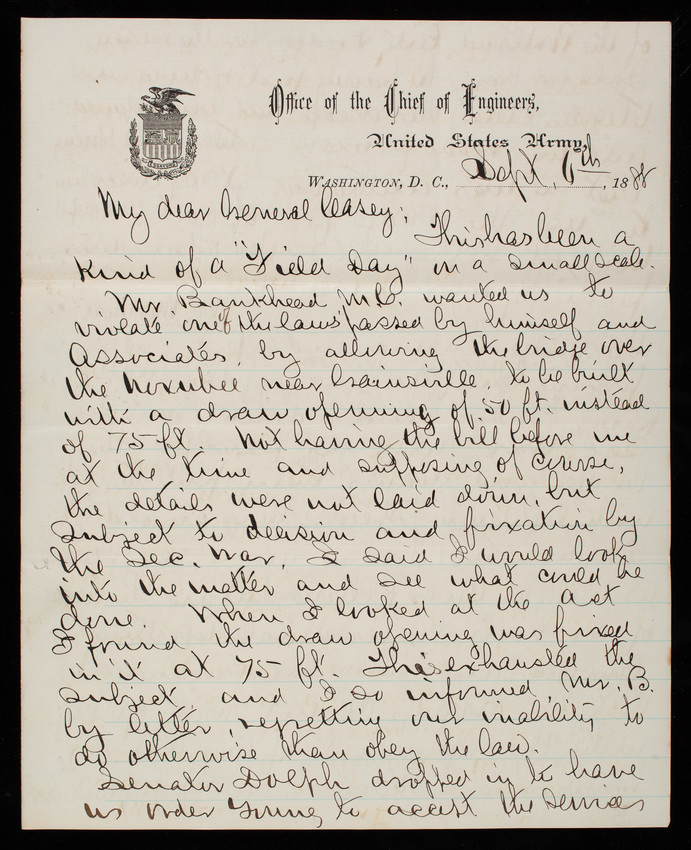 Office of the Chief of Engineers,
United States Army,
Washington, D. C., Sept. 6th, 1888
My dear General Casey;
This has been a
kind of a "Field Day" on a small scale.
Mr. Bankhead M.C. wanted us to
violate one of the laws passed by himself and
Associates, by allowing the bridge over
the Noxubee near Gainsville, to be built
with a draw openning of 50 ft. instead
of 75 ft. Not having the bill before me
at the time and supposing of course,
the details were not laid down, but
subject to decision and fixation by
the Sec. War, I said I would look
into the matter and see what could be
done. When I looked at the act
I found the draw opening was fixed
in it at 75 ft. This exhausted the
subject and I so informed Mr. B.
by letter, regretting our inability to
do otherwise than obey the law.
Senator Dolph dropped in to have
us order Young to accept the services